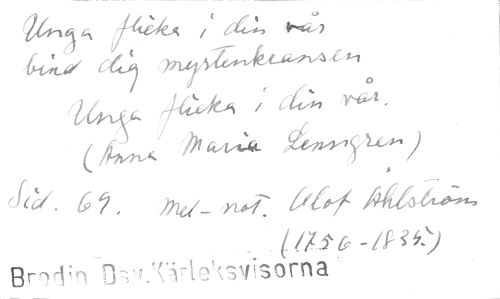 Unga flicka i din vår
bind dig myrtenkransen
Unga flicka i din vår.
(Anna Maria Lenngren)
Sid. 69. mel-not. Olof Åhlström
(1756-1835.)
Brodin Dav. Kärleksvisorna